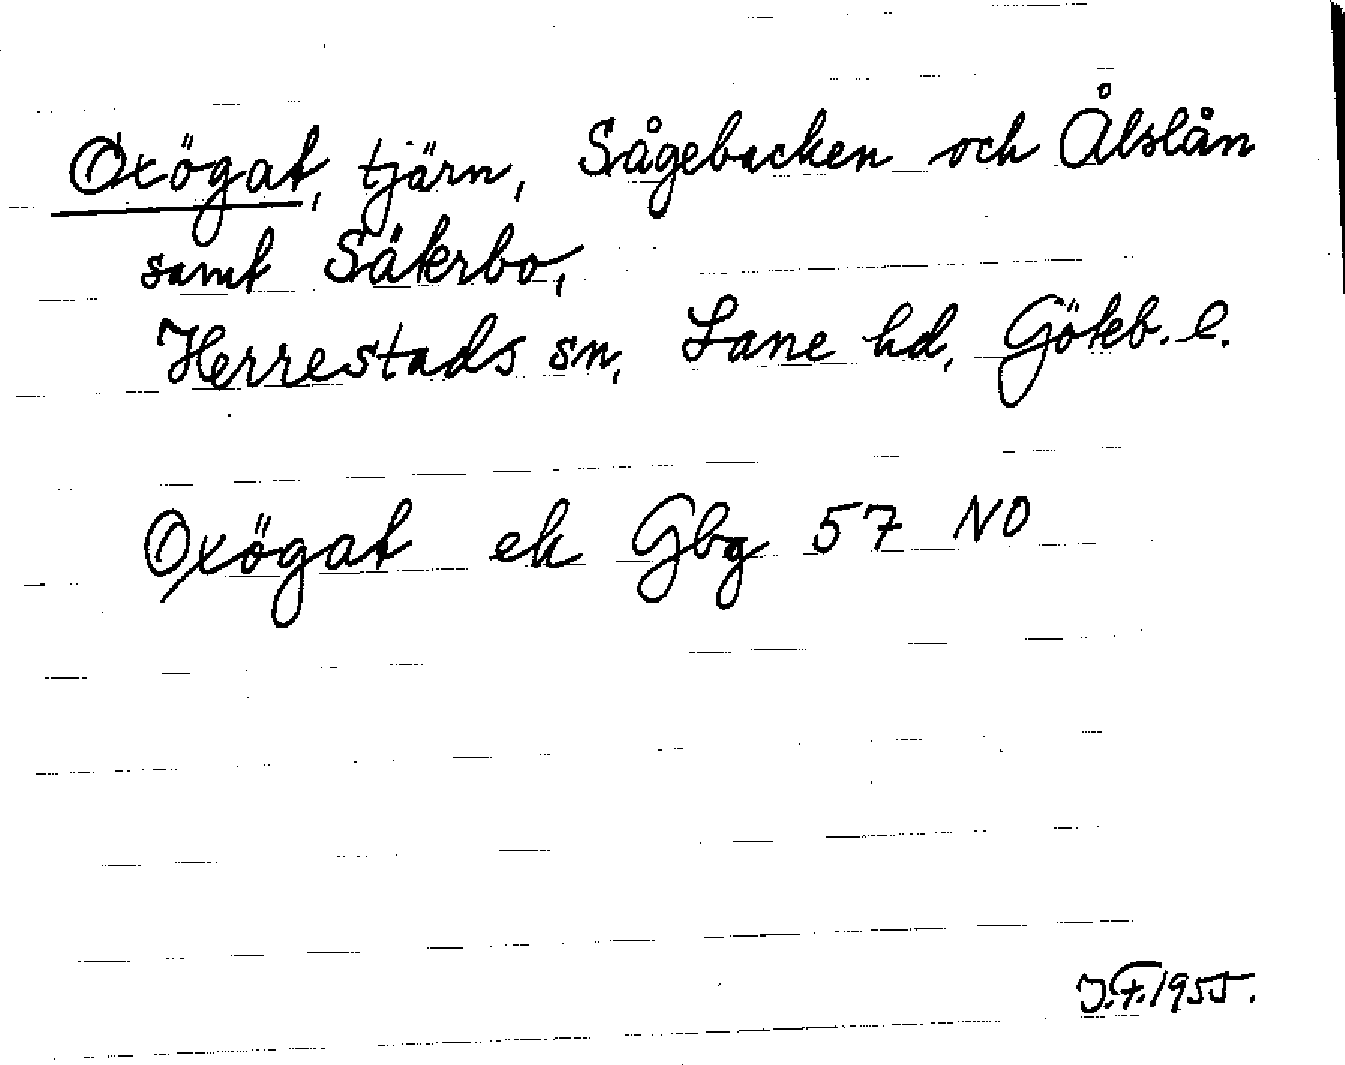 Oxögat, tjärn, Sågebacken och Ålslån
samt Säkerbo,
Herrestads sn, Lane hd, Göteb. l.
Oxögat ek Gbg 57 NO
J.F. 1955.